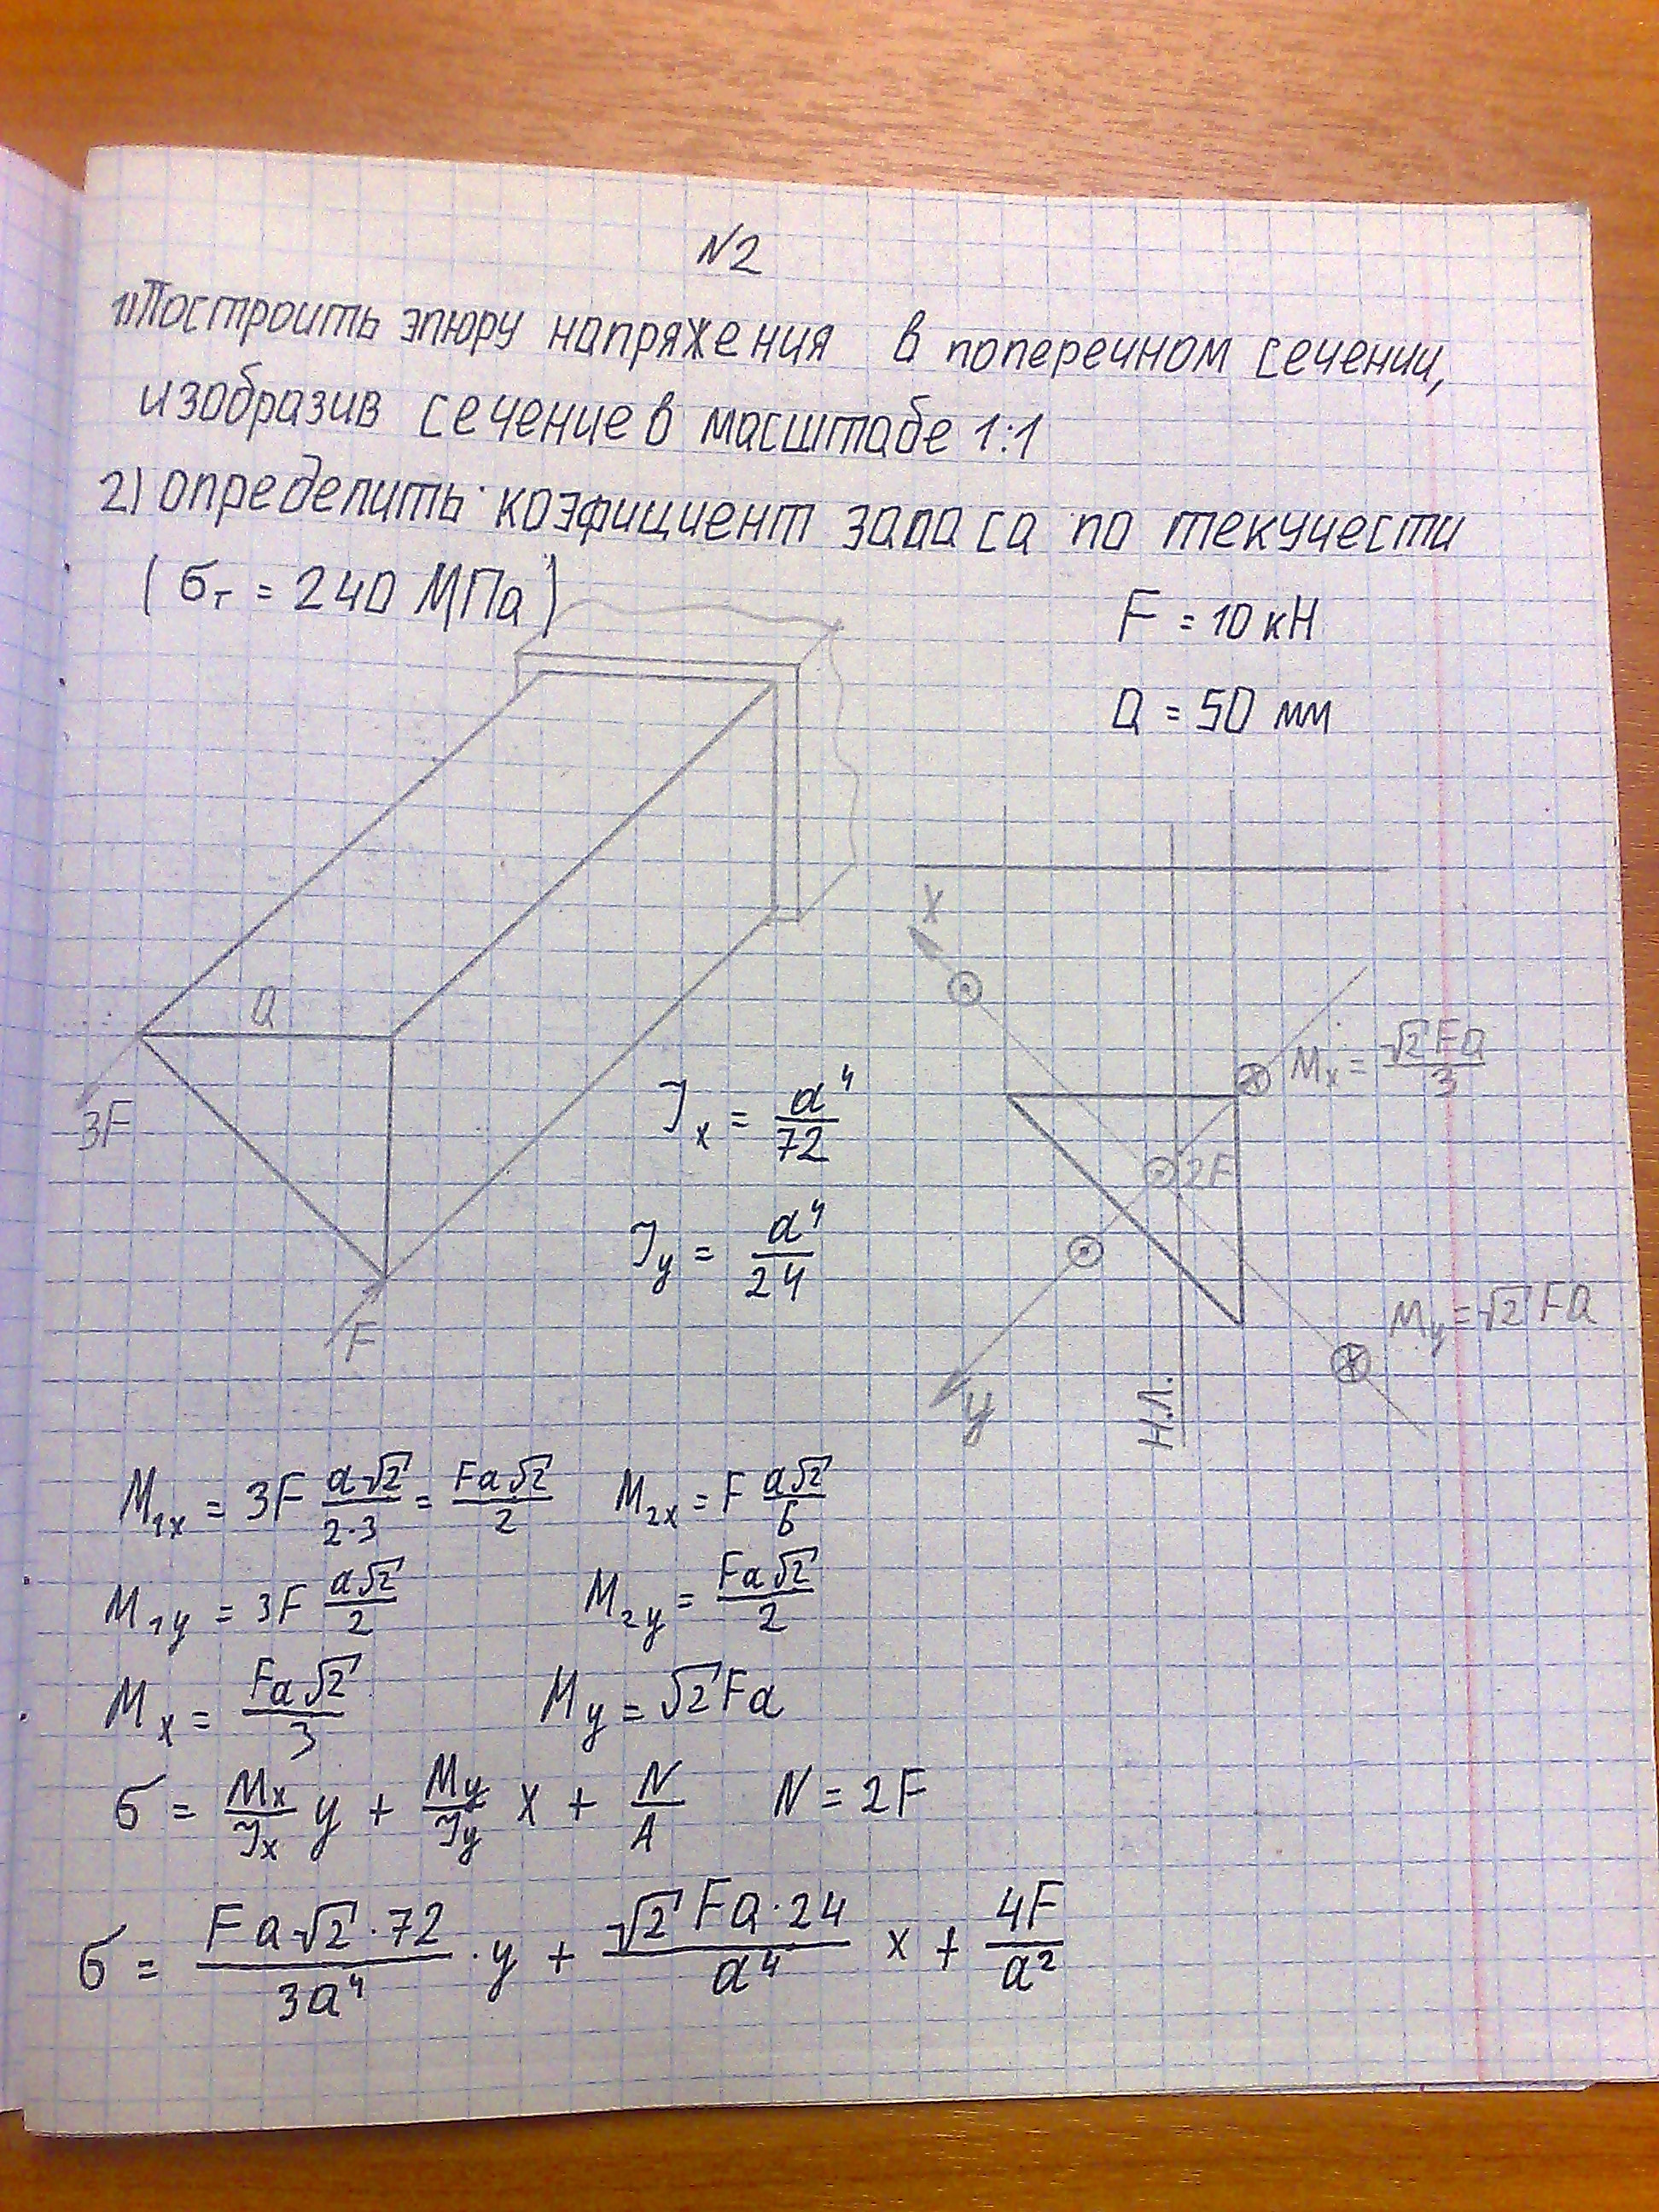 N2
1) Построить эпюру напряжения в поперечном сечении,
изобразив сечение в масштабе 1:1
2) определить коэфициент запаса по текучести
(σт = 240 МПа)
F = 10 кН
a = 50 мм
x
a
3F
F
Jx = a⁴/72
Jy = a⁴/24
Mx = √2Fa/3
2F
My = √2Fa
y
Н.Л.
M1x = 3F a√2/2·3 = Fa√2/2 M2x = F a√2/6
M1y = 3F a√2/2 M2y = Fa√2/2
Mx = Fa√2/3 My = √2Fa
σ = Mx/Jx y + My/Jy x + N/A N = 2F
σ = Fa√2·72/3a⁴ · y + √2Fa·24/a⁴ x + 4F/a²